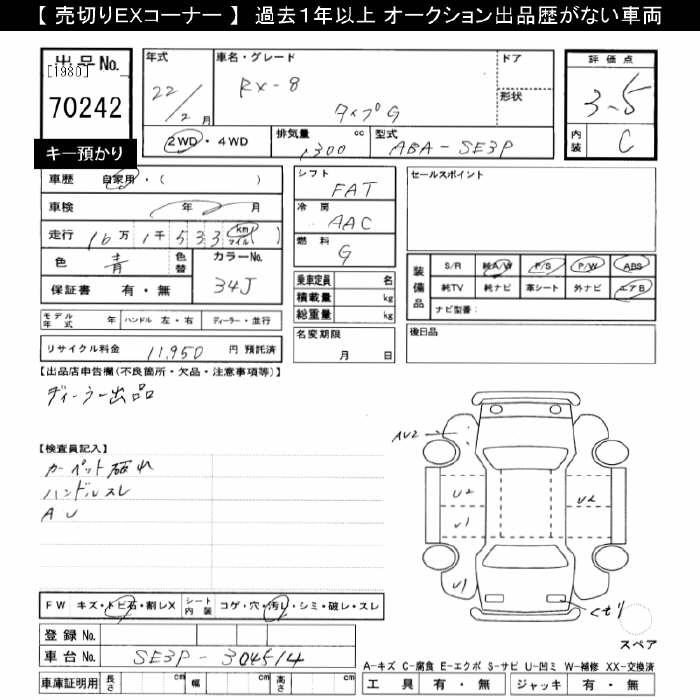 【 売切りEXコーナー 】 過去1年以上 オークション出品歴がない車両
出品No.
[1980]
70242
キー預かり
年式 22/2月
車名・グレード RX-8 タイプG
ドア
形状
評価点 3.5
内装 C
2WD・4WD
排気量 1300 cc
型式 ABA-SE3P
車歴 自家用・( )
車検 年 月
走行 16万1千533 km マイル ( )
色 青 色替
カラーNo. 34J
保証書 有・無
シフト FAT
冷房 AAC
燃料 G
乗車定員 名
積載量 kg
総重量 kg
名変期限 月 日
セールスポイント
装備品 S/R 純A/W P/S P/W ABS
純TV 純ナビ 革シート 外ナビ エアB
ナビ型番:
後日品
モデル年式 年 ハンドル 左・右 ディーラー・並行
リサイクル料金 11,950 円 預託済
【出品店申告欄(不良箇所・欠品・注意事項等)】
ディーラー出品
【検査員記入】
カーペット破れ
ハンドルスレ
AU
AU2
U2
U1
U2
U1
くもり
スペア
FW キズ・トビ石・割レX
シート内装 コゲ・穴・汚レ・シミ・破レ・スレ
登録 No.
車台 No. SE3P-304514
車庫証明用 長さ cm 幅 cm 高さ cm
A-キズ C-腐食 E-エクボ S-サビ U-凹ミ W-補修 XX-交換済
工具 有・無 ジャッキ 有・無